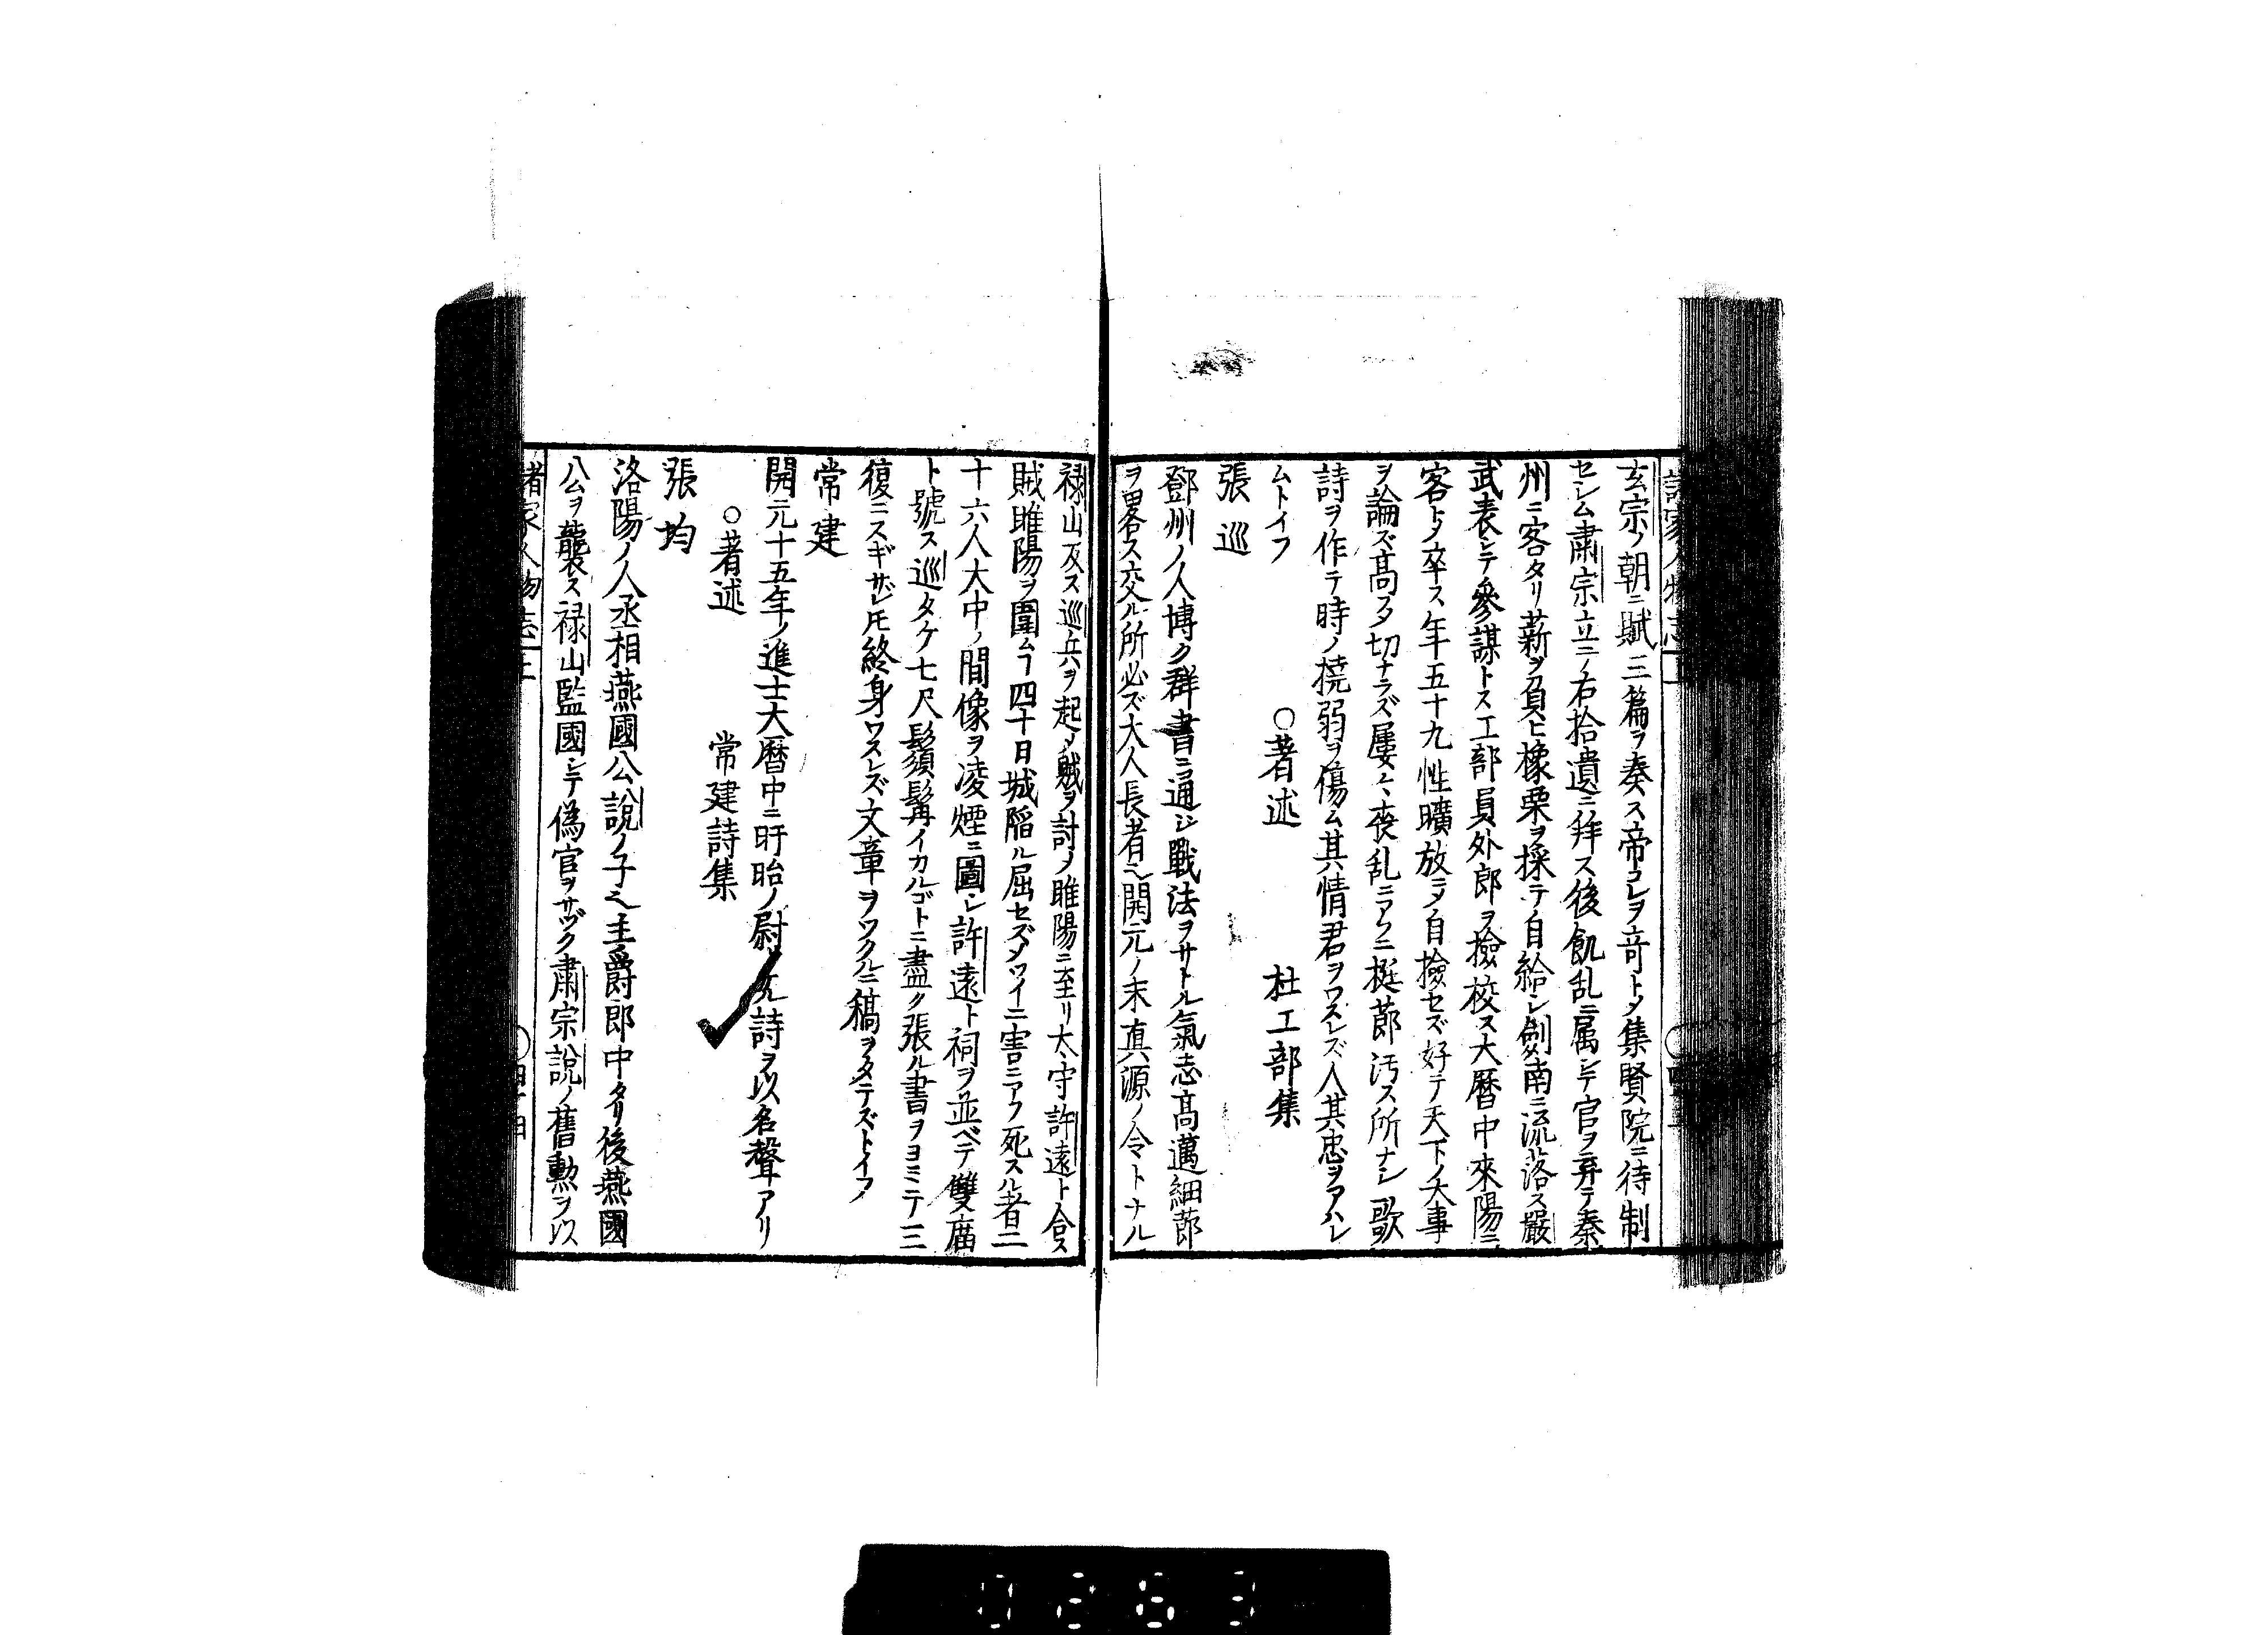 玄宗ノ朝ニ賦三篇ヲ奏ス帝コレヲ奇トメ集賢院ニ待制
セシム肅宗立ニノ右拾遺ニ拜ス後飢乱ニ属シテ官ヲ弃テ秦
州ニ客タリ薪ヲ負ヒ橡栗ヲ採テ自給シ劔南ニ流落ス嚴
武表シテ參謀トス工部員外郎ヲ撿校ス大曆中耒陽ニ
客トメ卒ス年五十九性曠放ニメ自撿セズ好テ天下ノ大事
ヲ論ズ高メ切ナラズ屢〻喪乱ニアフニ挺莭汚ス所ナシ歌
詩ヲ作テ時ノ撓弱ヲ傷ム其情君ヲワスレズ人其忠ヲアハレ
ムトイフ ○著述 杜工部集
張巡
鄧州ノ人博ク群書ニ通ジ戰法ヲサトル氣志高邁細莭
ヲ畧ス交ル所必ズ大人長者ニ開元ノ末真源ノ令トナル
禄山反ス巡兵ヲ起メ賊ヲ討ノ睢陽ニ至リ太守許遠ト合ス
賊睢陽ヲ圍ムヿ四十日城陷ル屈セズメツイニ害ニアフ死スル者三
十六人大中ノ間像ヲ凌煙ニ圖シ許遠ト祠ヲ並ベテ雙廟
ト號ス巡タケ七尺鬚髯イカルゴトニ盡ク張ル書ヲヨミテ三
復ニスギザレ𪜈終身ワスレズ文章ヲツクルニ稿ヲタテズトイフ
常建
開元十五年ノ進士大曆中ニ盱眙ノ尉 詩ヲ以名聲アリ
○著述 常建詩集
張均
洛陽ノ人丞相燕國公說ノ子ニ主爵郎中タリ後燕國
公ヲ襲ス禄山監國シテ偽官ヲサヅク肅宗說ノ舊勲ヲ以
諸家人物志